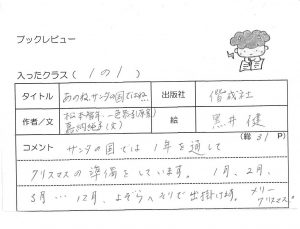 ブックレビュー
入ったクラス（ 1の1 ）
タイトル あのね、サンタの国ではね… 出版社 偕成社
作者／文 松本智年・一色恭子（原案）
嘉納純子（文） 絵 黒井 健
（総 31 P）
コメント サンタの国では 1年を通して
クリスマスの準備をしています。 1月、2月、
3月… 12月、よぞらへそりで出掛ける。メリー
クリスマス。